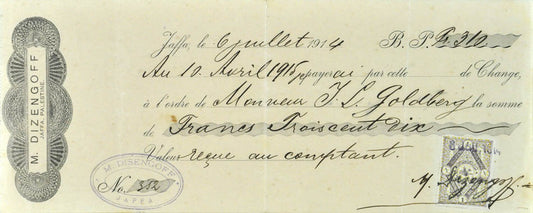 M. DIZENGOFF
JAFFA, PALESTINE
Jaffa, le 6 juillet 1914 B. P. Fr 310
Au 10 Avril 1915 je payerai par cette de Change,
à l'ordre de Monsieur I. L. Goldberg la somme
de Francs Troiscent dix
Valeur reçue au comptant.
M. DISENGOFF
No. 352
JAFFA
M. Dizengoff